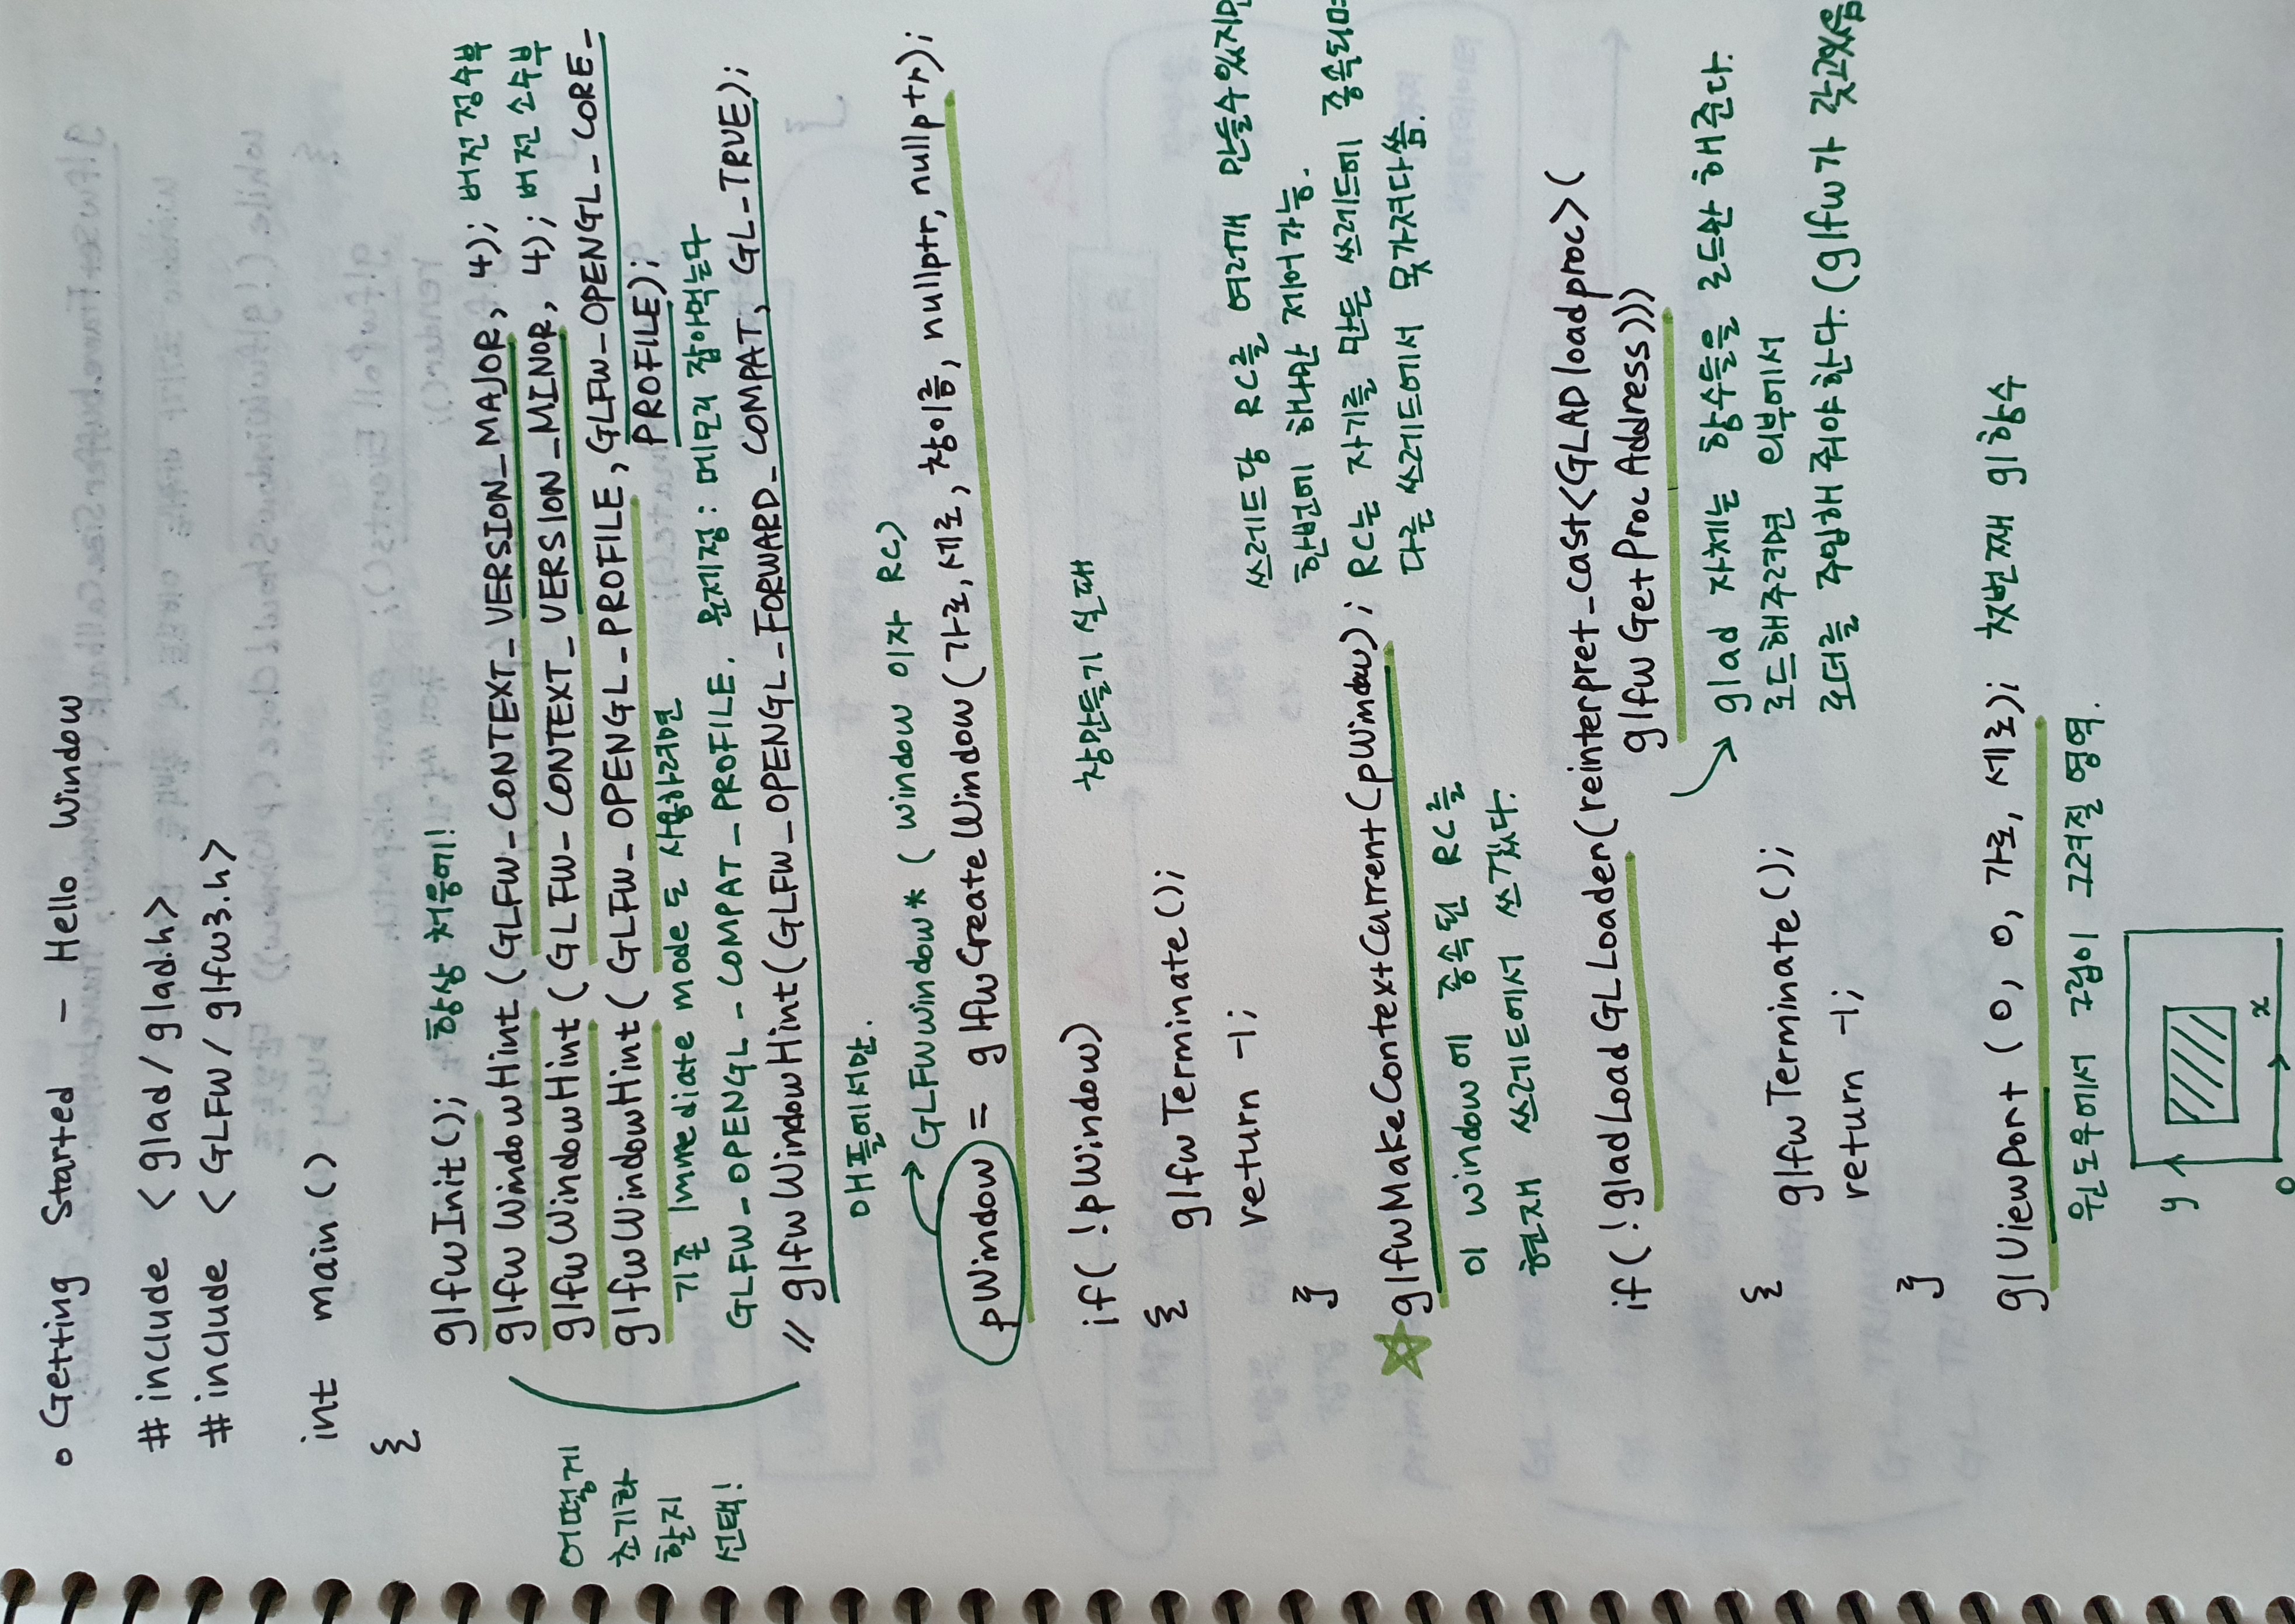 o Getting Started - Hello Window
#include <glad/glad.h>
#include <GLFW/glfw3.h>
int main()
{
glfwInit(); 항상 처음에!
glfwWindowHint(GLFW_CONTEXT_VERSION_MAJOR, 4); 버전 정수부
glfwWindowHint(GLFW_CONTEXT_VERSION_MINOR, 4); 버전 소수부
glfwWindowHint(GLFW_OPENGL_PROFILE, GLFW_OPENGL_CORE_
PROFILE);
어떻게
초기화
할지
선택!
기존 Immediate mode도 사용하려면
GLFW_OPENGL_COMPAT_PROFILE. 문제점: 메모리 잡아먹는다
// glfwWindowHint(GLFW_OPENGL_FORWARD_COMPAT, GL_TRUE);
애플에서만.
GLFWwindow* (window 이자 RC)
pWindow = glfwCreateWindow(가로, 세로, 창이름, nullptr, nullptr);
if( !pWindow) 창만들기 실패
{ glfwTerminate();
return -1;
}
쓰레드당 RC를 여러개 만들수있지만
한번에 하나만 제어가능.
glfwMakeContextCurrent(pWindow); RC는 자기를 만든 쓰레드에 종속되며
다른 쓰레드에서 못가져다씀.
이 window에 종속된 RC를
현재 쓰레드에서 쓰겠다.
if( !gladLoadGLLoader(reinterpret_cast<GLADloadproc>(
glfwGetProcAddress)))
glad 자체는 함수들을 로드만 해준다.
{ 로드해주려면 외부에서
glfwTerminate();
로더를 주입해 줘야한다. (glfw가 갖고있음
return -1;
}
glViewport (0, 0, 가로, 세로); 첫번째 gl함수
윈도우에서 그림이 그려질 영역.
y
x
0